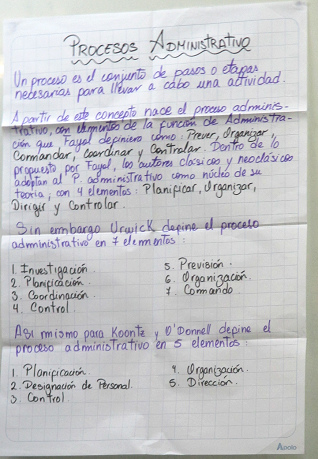 PROCESOS ADMINISTRATIVO
Un proceso es el conjunto de pasos o etapas
necesarias para llevar a cabo una actividad.
A partir de este concepto nace el proceso adminis-
trativo, con elementos de la función de Administra-
ción que Fayol definiere como: Prever, Organizar,
Commandar, Coordinar y Controlar. Dentro de lo
propuesto por Fayol, los autores clásicos y neoclásicos
adoptan al P. administrativo como núcleo de su
teoría, con 4 elementos: Planificar, Organizar,
Dirigir y Controlar.
Sin embargo Urwick define el proceso
administrativo en 7 elementos:
1. Investigación.
2. Planificación.
3. Coordinación.
4. Control.
5. Previsión.
6. Organización.
7. Comando
Asi mismo para Koontz y O'Donnell define el
proceso administrativo en 5 elementos:
1. Planificación.
2. Designación de Personal.
3. Control.
4. Organización.
5. Dirección.
Apolo